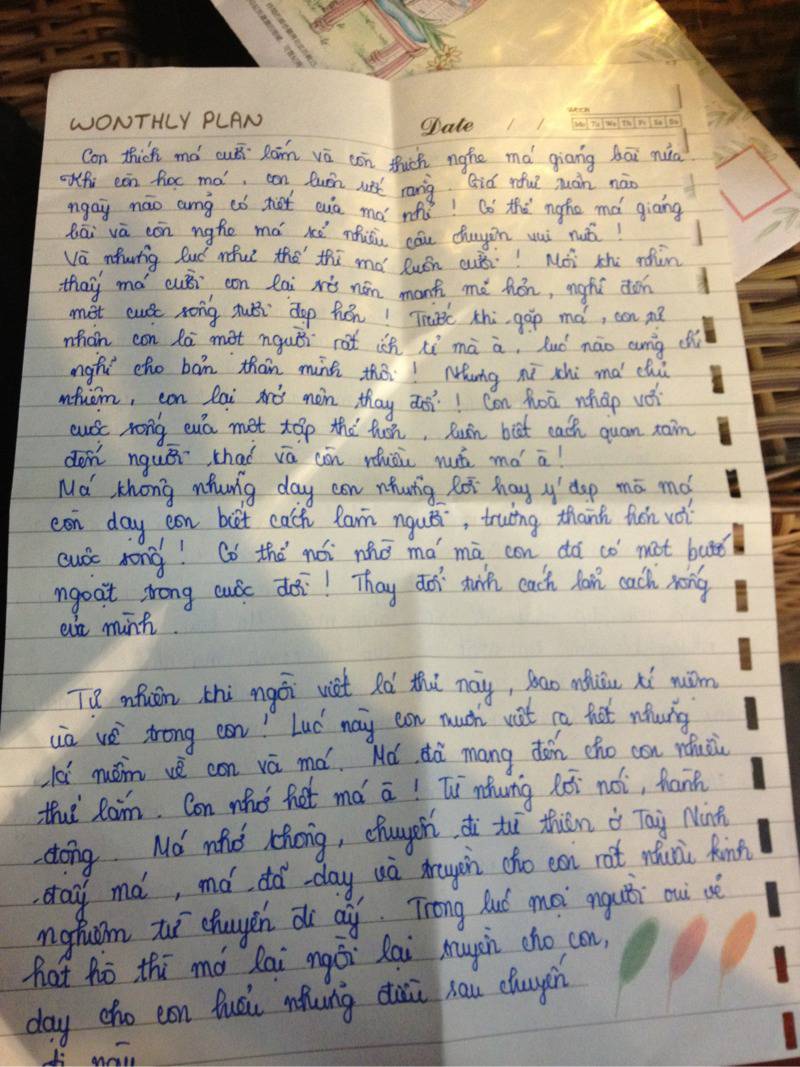 WONTHLY PLAN
Date / /
WEEK
Mo Tu We Th Fr Sa Su
Con thích má cười lắm và còn thích nghe má giảng bài nữa.
Khi còn học má, con luôn ước rằng. Giá như tuần nào
ngày nào cũng có tiết của má nhỉ! Có thể nghe má giảng
bài và còn nghe má kể nhiều câu chuyện vui nữa!
Và những lúc như thế thì má luôn cười! Mỗi khi nhìn
thấy má cười con lại trở nên mạnh mẽ hơn, nghĩ đến
một cuộc sống tươi đẹp hơn! Trước khi gặp má, con tự
nhận con là một người rất ích kỉ mà à, lúc nào cũng chỉ
nghĩ cho bản thân mình thôi! Nhưng từ khi má chủ
nhiệm, con lại trở nên thay đổi! Con hoà nhập với
cuộc sống của một tập thể hơn, luôn biết cách quan tâm
đến người khác và còn nhiều nữa má à!
Má không những dạy con những lời hay ý đẹp mà má
còn dạy con biết cách làm người, trưởng thành hơn với
cuộc sống! Có thể nói nhờ má mà con đã có một bước
ngoặt trong cuộc đời! Thay đổi tính cách lẫn cách sống
của mình.
Tự nhiên khi ngồi viết lá thư này, bao nhiêu kỉ niệm
ùa về trong con! Lúc này con muốn viết ra hết những
kỉ niệm về con và má. Má đã mang đến cho con nhiều
thứ lắm. Con nhớ hết má à! Từ những lời nói, hành
động. Má nhớ không, chuyến đi từ thiện ở Tây Ninh
đấy má, má đã dạy và truyền cho con rất nhiều kinh
nghiệm từ chuyến đi ấy. Trong lúc mọi người vui vẻ
hát hò thì má lại ngồi lại truyền cho con,
dạy cho con hiểu những điều sau chuyến
đi này